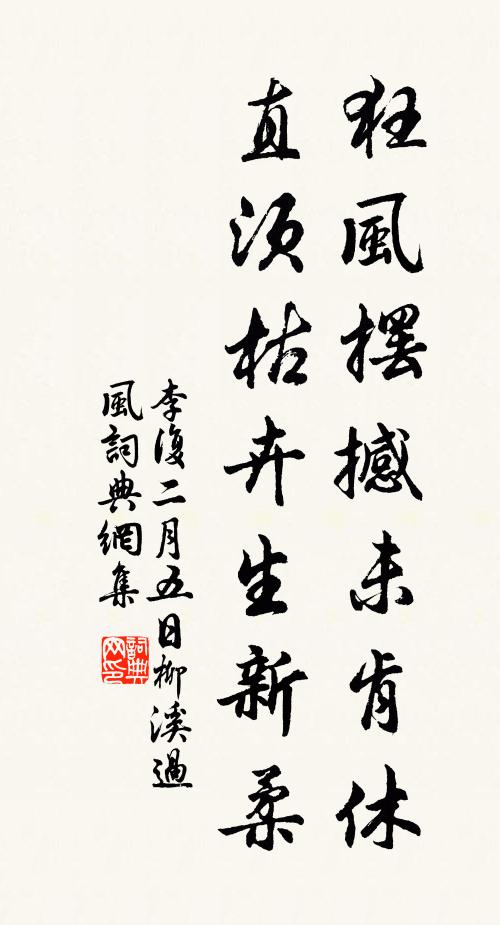 狂風擺撼未肯休
直須枯卉生新柔
李復二月五日柳溪過
風詞典網集
詞典
网印